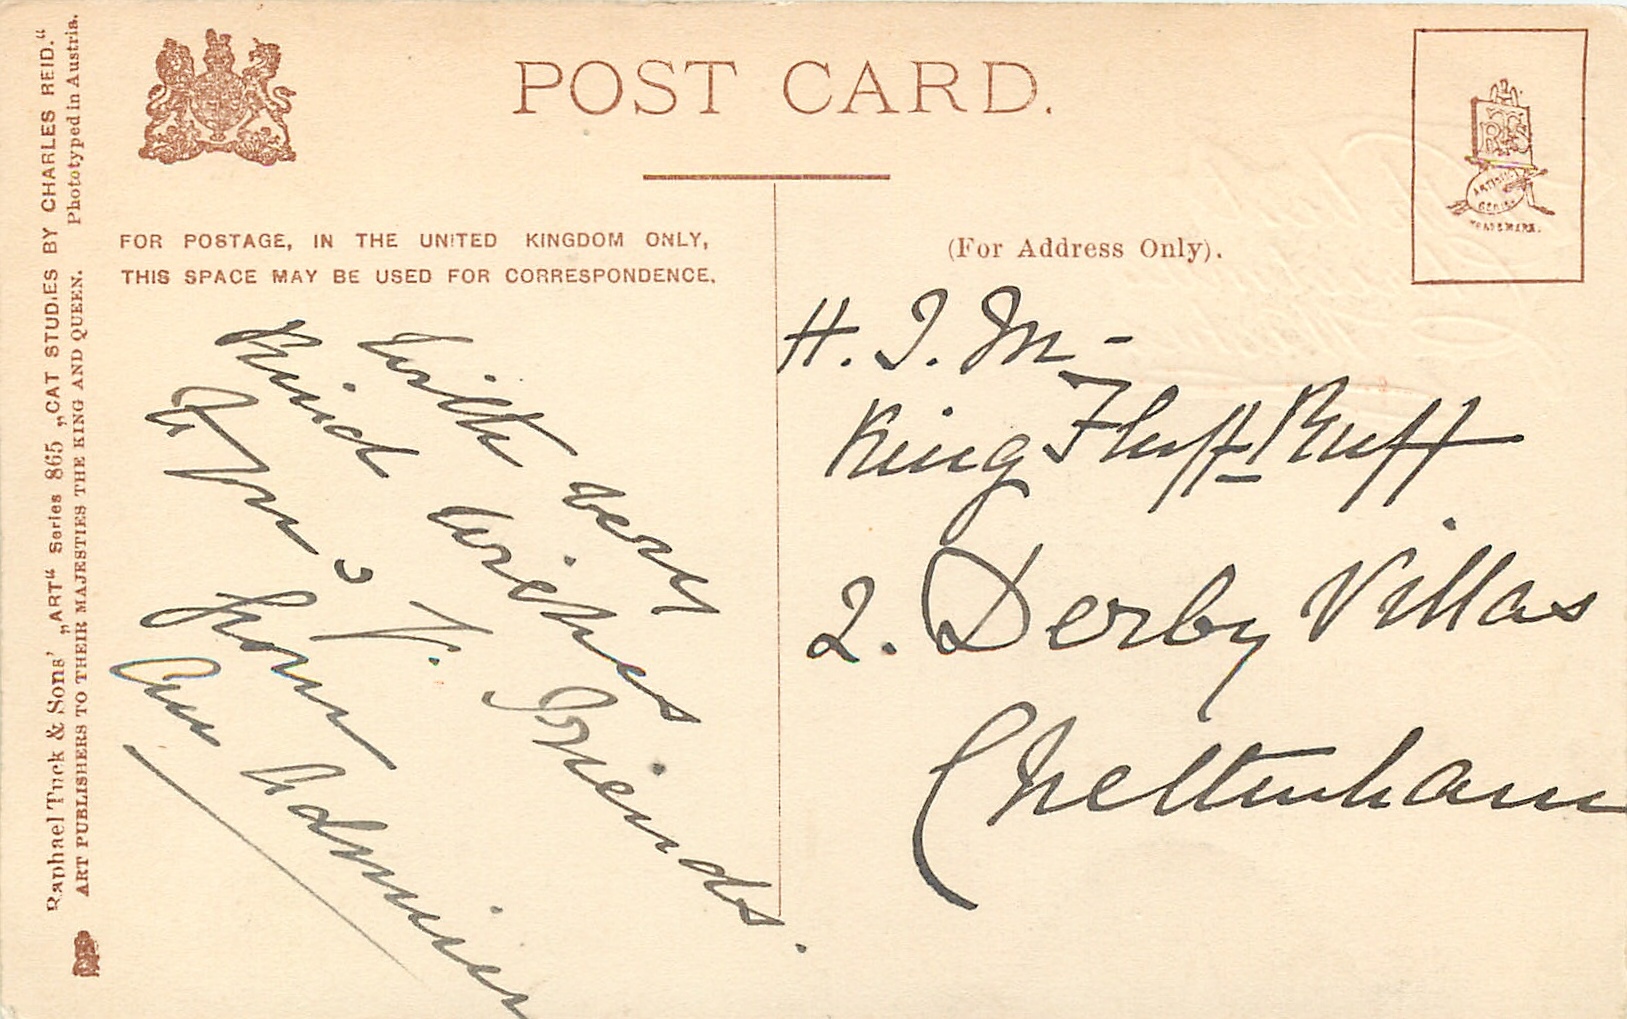 POST CARD.
FOR POSTAGE, IN THE UNITED KINGDOM ONLY,
THIS SPACE MAY BE USED FOR CORRESPONDENCE.
(For Address Only).
RTS
TRADE MARK.
Raphael Tuck & Sons' „ART“ Series 865 „CAT STUDIES BY CHARLES REID.“
ART PUBLISHERS TO THEIR MAJESTIES THE KING AND QUEEN. Phototyped in Austria.
With very
Kind Wishes
& V. Friends.
from
An Admirer
H. I. M-
King Fluff-Ruff
2. Derby Villas
Cheltenham